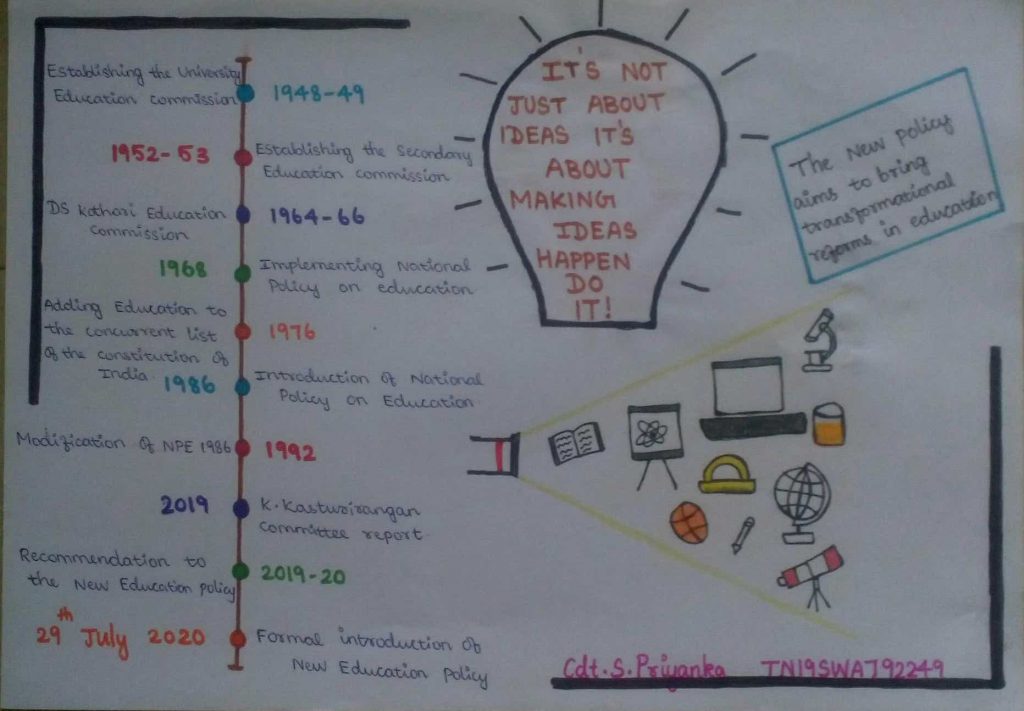 Establishing the University
Education commission
1948-49
1952-53
Establishing the Secondary
Education commission
DS Kothari Education
Commission
1964-66
1968
Implementing National
Policy on education
Adding Education to
the concurrent list
of the constitution of
India
1976
1986
Introduction of National
Policy on Education
Modification of NPE 1986
1992
2019
K. Kasturirangan
Committee report
Recommendation to
the New Education policy
2019-20
29th July 2020
Formal introduction of
New Education Policy
IT'S NOT
JUST ABOUT
IDEAS IT'S
ABOUT
MAKING
IDEAS
HAPPEN
DO
IT!
The New policy
aims to bring
transformational
reforms in education
Cdt. S. Priyanka TN19SWA792249